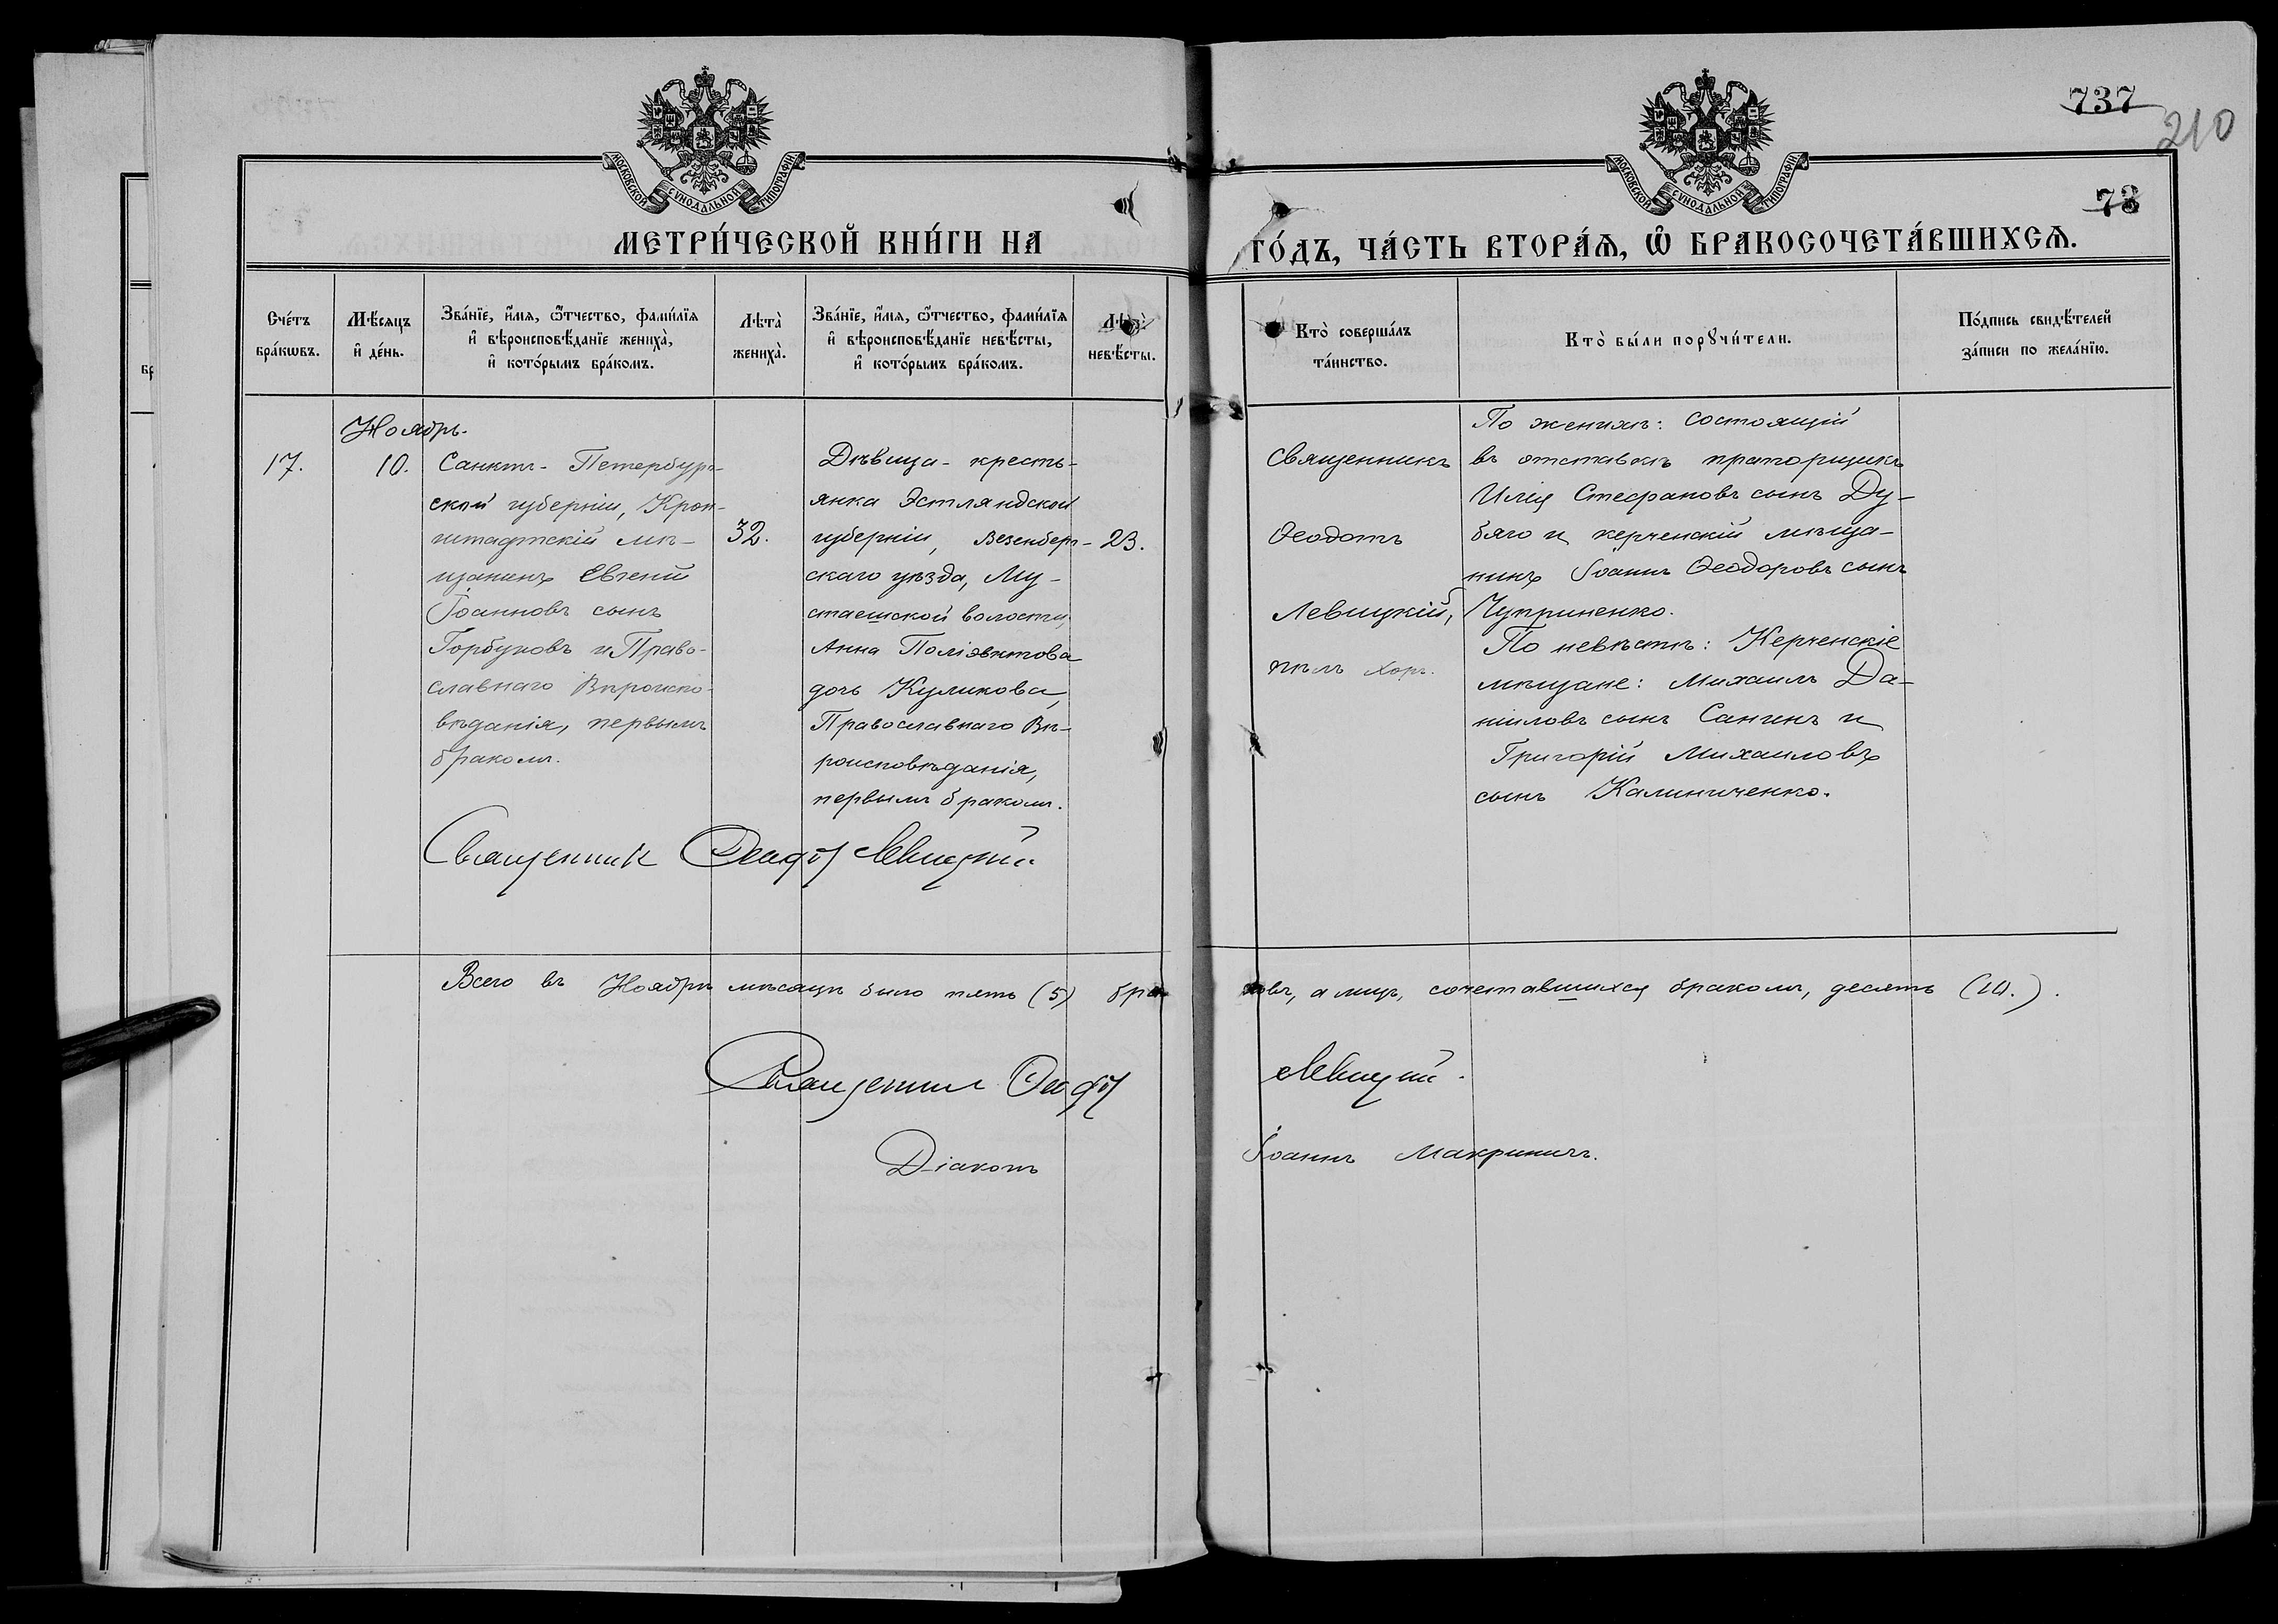 737
210
МОСКОВСКОЙ СѴНОДАЛЬНОЙ ТИПОГРАФІИ
МОСКОВСКОЙ СѴНОДАЛЬНОЙ ТИПОГРАФІИ
73
МЕТРИ́ЧЕСКОЙ КНИ́ГИ НА
ГО́ДЪ, ЧА́СТЬ ВТОРА́Я, Ѡ҆ БРАКОСОЧЕТА́ВШИХСЯ.
Сче́тъ
бра́кѡвъ.
Мѣ́сяцъ
и҆ де́нь.
Зва́нїе, и҆́мя, ѻ҆́тчество, фами́лїя
и҆ вѣроисповѣ́данїе жениха̀,
и҆ кото́рымъ бра́комъ.
Лѣта̀
жениха̀.
Зва́нїе, и҆́мя, ѻ҆́тчество, фами́лїя
и҆ вѣроисповѣ́данїе невѣ́сты,
и҆ кото́рымъ бра́комъ.
Лѣта̀
невѣ́сты.
Кто̀ соверша́лъ
та́инство.
Кто̀ бы́ли порꙋчи́тели.
По́дпись свидѣ́телей
за́писи по жела́нїю.
Ноябрь.
17.
10.
Санктъ-Петербург-
ской губерніи, Крон-
штадтскій мѣ-
щанинъ Евгеній
Іоанновъ сынъ
Горбуновъ и Право-
славнаго Вѣроиспо-
вѣданія, первымъ
бракомъ.
32.
Дѣвица-кресть-
янка Эстляндской
губерніи, Везенберг-
скаго уѣзда, Му-
стаешской волости,
Анна Поліэвктова
дочь Куликова,
Православнаго Вѣ-
роисповѣданія,
первымъ бракомъ.
23.
Священникъ
Ѳеодотъ
Левицкій,
пѣлъ хоръ.
По женихѣ: состоящій
въ отставкѣ прапорщикъ
Илія Стефановъ сынъ Ду-
бяго и керченскій мѣща-
нинъ Іоаннъ Ѳеодоровъ сынъ
Чуприненко.
По невѣстѣ: Керченскіе
мѣщане: Михаилъ Да-
ніиловъ сынъ Санинъ и
Григорій Михаиловъ
сынъ Калиниченко.
Священникъ Ѳеодотъ Левицкій
Всего въ Ноябрѣ мѣсяцѣ было пять (5) бра-
ковъ, а лицъ, сочетавшихся бракомъ, десять (10.).
Священникъ Ѳеодотъ Левицкій.
Діаконъ Іоаннъ Макриничъ.